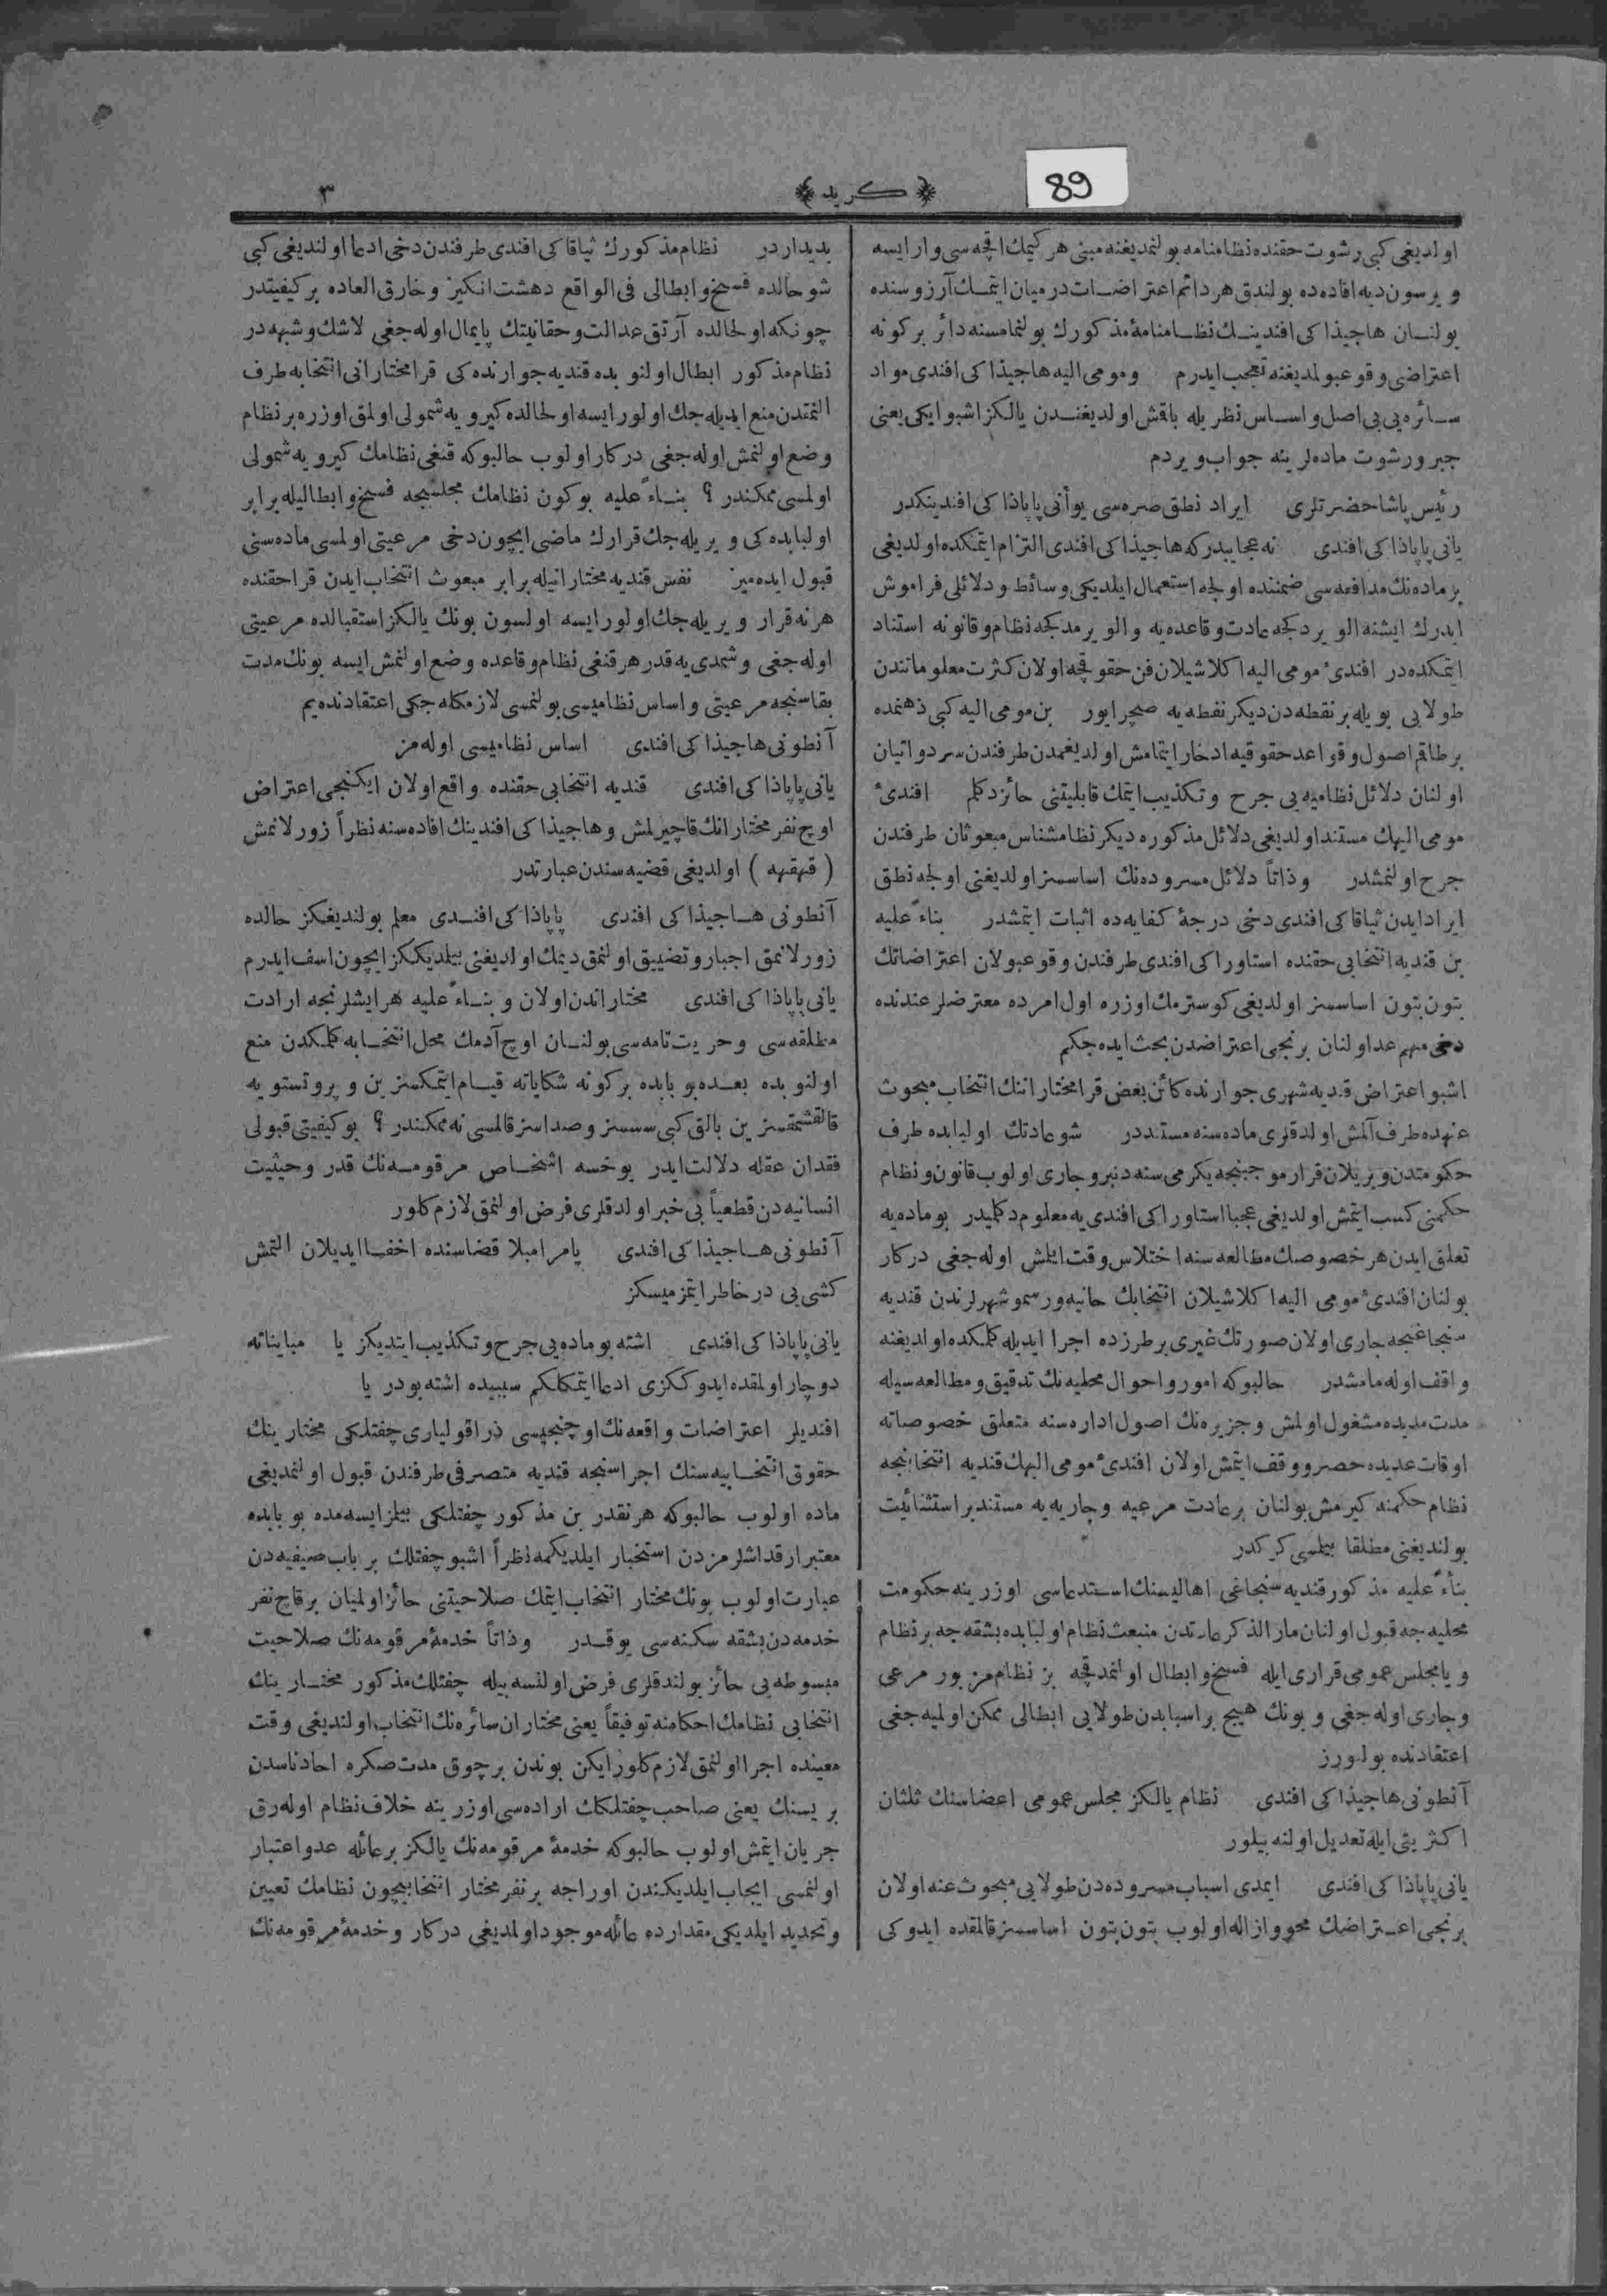 89
﴿ كريد ﴾
٣
اولديغى كبى رشوت حقنده نظامنامه بولنمديغنه مبنى هر كيمك اقچه سى وار ايسه
ويرسون ديه افاده ده بولندق هر دائم اعتراضات درميان ايتمك آرزوسنده
بولنان هاجيذاكى افندينك نظامنامهٔ مذكورك بولنمامسنه دائر بركونه
اعتراضى وقوعبولمديغنه تعجب ايدرم ومومى اليه هاجيذاكى افندى مواد
سائره يى بى اصل واساس نظريله باقمش اولديغندن يالكز اشبو ايكى يعنى
جبر ورشوت ماده لرينه جواب ويردم
رئيس پاشا حضرتلرى ايراد نطق صره سى يوأنى پاپاذاكى افندينكدر
يانى پاپاذاكى افندى نه عجايبدركه هاجيذاكى افندى التزام ايتمكده اولديغى
بر ماده نك مدافعه سى ضمننده اولجه استعمال ايلديكى وسائط ودلائلى فراموش
ايدرك ايشنه الويردكجه عادت وقاعده يه والويرمدكجه نظام وقانونه استناد
ايتمكده در افندىٔ مومى اليه اكلاشيلان فن حقوقجه اولان كثرت معلوماتندن
طولايى بويله بر نقطه دن ديكر نقطه يه صچرايور بن مومى اليه كبى ذهنمده
برطاقم اصول وقواعد حقوقيه ادخار ايتمامش اولديغمدن طرفندن سرد واتيان
اولنان دلائل نظاميه يى جرح وتكذيب ايتمك قابليتنى حائز دكلم افندىٔ
مومى اليهك مستند اولديغى دلائل مذكوره ديكر نظامشناس مبعوثان طرفندن
جرح اولنمشدر وذاتاً دلائل مسروده نك اساسسز اولديغنى اولجه نطق
ايراد ايدن ثياقاكى افندى دخى درجهٔ كفايه ده اثبات ايتمشدر بناءً عليه
بن قنديه انتخابى حقنده استاوراكى افندى طرفندن وقوعبولان اعتراضاتك
بتون بتون اساسسز اولديغى كوسترمك اوزره اول امرده معترضلر عندنده
دخى مهم عد اولنان برنجى اعتراضدن بحث ايده جكم
اشبو اعتراض قنديه شهرى جوارنده كائن بعض قرا مختاراننك انتخاب مبحوث
عنهده طرف آلمش اولدقلرى ماده سنه مستنددر شو عادتك اولبابده طرف
حكومتدن ويريلان قرار موجبنجه يكرمى سنه دنبرو جارى اولوب قانون ونظام
حكمنى كسب ايتمش اولديغى عجبا استاوراكى افندى يه معلوم دكليدر بو ماده يه
تعلق ايدن هر خصوصك مطالعه سنه اختلاس وقت ايلمش اوله جغى دركار
بولنان افندىٔ مومى اليه اكلاشيلان انتخابك حانيه ورسمو شهرلرندن قنديه
سنجاغنجه جارى اولان صورتك غيرى بر طرزده اجرا ايديله كلمكده اولديغنه
واقف اوله مامشدر حالبوكه امور واحوال محليه نك تدقيق ومطالعه سيله
مدت مديده مشغول اولمش وجزيره نك اصول اداره سنه متعلق خصوصاته
اوقات عديده حصر ووقف ايتمش اولان افندىٔ مومى اليهك قنديه انتخابنجه
نظام حكمنه كيرمش بولنان برعادت مرعيه وجاريه يه مستند بر استثنائيت
بولنديغنى مطلقا بيلمسى كركدر
بناءً عليه مذكور قنديه سنجاغى اهاليسنك استدعاسى اوزرينه حكومت
محليه جه قبول اولنان مار الذكر عادتدن منبعث نظام اولبابده بشقه جه بر نظام
ويا مجلس عمومى قرارى ايله فسخ وابطال اولنمدقچه بز نظام مزبور مرعى
وجارى اوله جغى وبونك هيچ بر اسبابدن طولايى ابطالى ممكن اولميه جغى
اعتقادنده بولورز
آنطونى هاجيذاكى افندى نظام يالكز مجلس عمومى اعضاسنك ثلثان
اكثريتى ايله تعديل اولنه بيلور
يانى پاپاذاكى افندى ايمدى اسباب مسروده دن طولايى مبحوث عنه اولان
برنجى اعتراضك محو وازاله اولوب بتون بتون اساسسز قالمقده ايدوكى
بديداردر نظام مذكورك ثياقاكى افندى طرفندن دخى ادعا اولنديغى كبى
شو حالده فسخ وابطالى فى الواقع دهشت انكيز وخارق العاده بر كيفيتدر
چونكه اولحالده آرتق عدالت وحقانيتك پايمال اوله جغى لاشك وشبهه در
نظام مذكور ابطال اولنوبده قنديه جوارنده كى قرا مختارانى انتخابه طرف
النمقدن منع ايديله جك اولور ايسه اولحالده كيرويه شمولى اولمق اوزره بر نظام
وضع اولنمش اوله جغى دركار اولوب حالبوكه قنغى نظامك كيرويه شمولى
اولمسى ممكندر ؟ بناءً عليه بوكون نظامك مجلسجه فسخ وابطاليله برابر
اولبابده كى ويريله جك قرارك ماضى ايچون دخى مرعيتى اولمسى ماده سنى
قبول ايده ميز نفس قنديه مختارانيله برابر مبعوث انتخاب ايدن قرا حقنده
هر نه قرار ويريله جك اولور ايسه اولسون بونك يالكز استقبالده مرعيتى
اوله جغى وشمدى يه قدر هر قنغى نظام وقاعده وضع اولنمش ايسه بونك مدت
بقاسنجه مرعيتى واساس نظاميسى بولنمسى لازمكله جكى اعتقادنده يم
آنطونى هاجيذاكى افندى اساس نظاميسى اوله مز
يانى پاپاذاكى افندى قنديه انتخابى حقنده واقع اولان ايكنجى اعتراض
اوچ نفر مختارانك قاچيرلمش وهاجيذاكى افندينك افاده سنه نظراً زورلانمش
( قهقهه ) اولديغى قضيه سندن عبارتدر
آنطونى هاجيذاكى افندى پاپاذاكى افندى معلم بولنديغكز حالده
زورلانمق اجبار وتضييق اولنمق ديمك اولديغنى بيلمديككز ايچون اسف ايدرم
يانى پاپاذاكى افندى مختاراندن اولان وبناءً عليه هر ايشلرنجه ارادت
مطلقه سى وحريت تامه سى بولنان اوچ آدمك محل انتخابه كلمكدن منع
اولنوبده بعده بوبابده بركونه شكاياته قيام ايتمكسزين وپروتستويه
قالقشمقسزين بالق كبى سسسز وصداسز قالمسى نه ممكندر ؟ بو كيفيتى قبولى
فقدان عقله دلالت ايدر بوخسه اشخاص مرقومه نك قدر وحيثيت
انسانيه دن قطعياً بى خبر اولدقلرى فرض اولنمق لازم كلور
آنطونى هاجيذاكى افندى يا مرامبلا قضاسنده اخفا ايديلان التمش
كشى يى در خاطر ايتمزميسكز
يانى پاپاذاكى افندى اشته بو ماده يى جرح وتكذيب ايتديكز يا مبايناته
دوچار اولمقده ايدوككزى ادعا ايتمكلكم سببيده اشته بودر يا
افنديلر اعتراضات واقعه نك اوچنجيسى ذراقولیارى چفتلكى مختارينك
حقوق انتخابيه سنك اجراسنجه قنديه متصرفى طرفندن قبول اولنمديغى
ماده اولوب حالبوكه هر نقدر بن مذكور چفتلكى بيلمز ايسه مده بوبابده
معتبر ارقداشلرمزدن استخبار ايلديكمه نظراً اشبو چفتلك بر باب صيفيه دن
عبارت اولوب بونك مختار انتخاب ايتمك صلاحيتنى حائز اولميان بر قاچ نفر
خدمه دن بشقه سكنه سى يوقدر وذاتاً خدمهٔ مرقومه نك صلاحيت
مبسوطه يى حائز بولندقلرى فرض اولنسه بيله چفتلك مذكور مختارينك
انتخابى نظامك احكامنه توفيقاً يعنى مختاران سائره نك انتخاب اولنديغى وقت
معينده اجرا اولنمق لازم كلور ايكن بوندن بر چوق مدت صكره احاد ناسدن
بريسنك يعنى صاحب چفتلكك اراده سى اوزرينه خلاف نظام اوله رق
جريان ايتمش اولوب حالبوكه خدمهٔ مرقومه نك يالكز بر عائله عد واعتبار
اولنمسى ايجاب ايلديكندن اوراجه بر نفر مختار انتخابيچون نظامك تعيين
وتحديد ايلديكى مقدارده عائله موجود اولمديغى دركار وخدمهٔ مرقومه نك